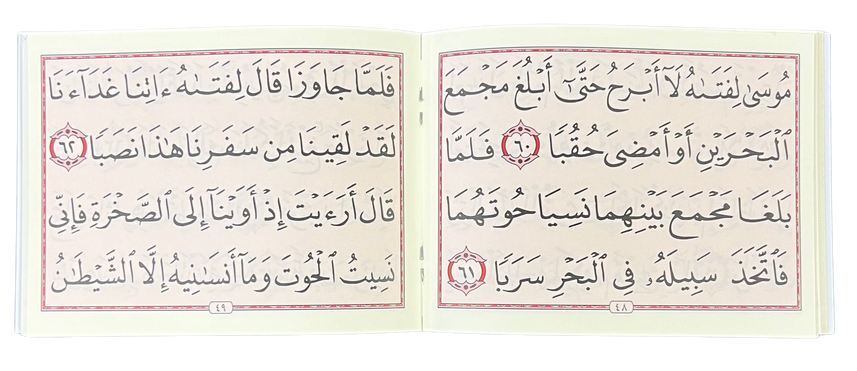 مُوسَىٰ لِفَتَىٰهُ لَآ أَبْرَحُ حَتَّىٰٓ أَبْلُغَ مَجْمَعَ
ٱلْبَحْرَيْنِ أَوْ أَمْضِىَ حُقُبًا ٦٠ فَلَمَّا
بَلَغَا مَجْمَعَ بَيْنِهِمَا نَسِيَا حُوتَهُمَا
فَٱتَّخَذَ سَبِيلَهُۥ فِى ٱلْبَحْرِ سَرَبًا ٦١
٤٨
فَلَمَّا جَاوَزَا قَالَ لِفَتَىٰهُ ءَاتِنَا غَدَآءَنَا
لَقَدْ لَقِينَا مِن سَفَرِنَا هَٰذَا نَصَبًا ٦٢
قَالَ أَرَءَيْتَ إِذْ أَوَيْنَآ إِلَى ٱلصَّخْرَةِ فَإِنِّى
نَسِيتُ ٱلْحُوتَ وَمَآ أَنسَىٰنِيهُ إِلَّا ٱلشَّيْطَٰنُ
٤٩